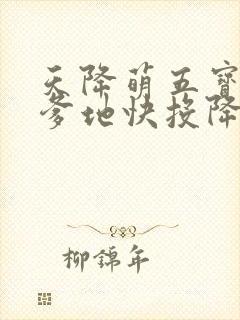 天降萌五寶
爹地快投降
柳錦年